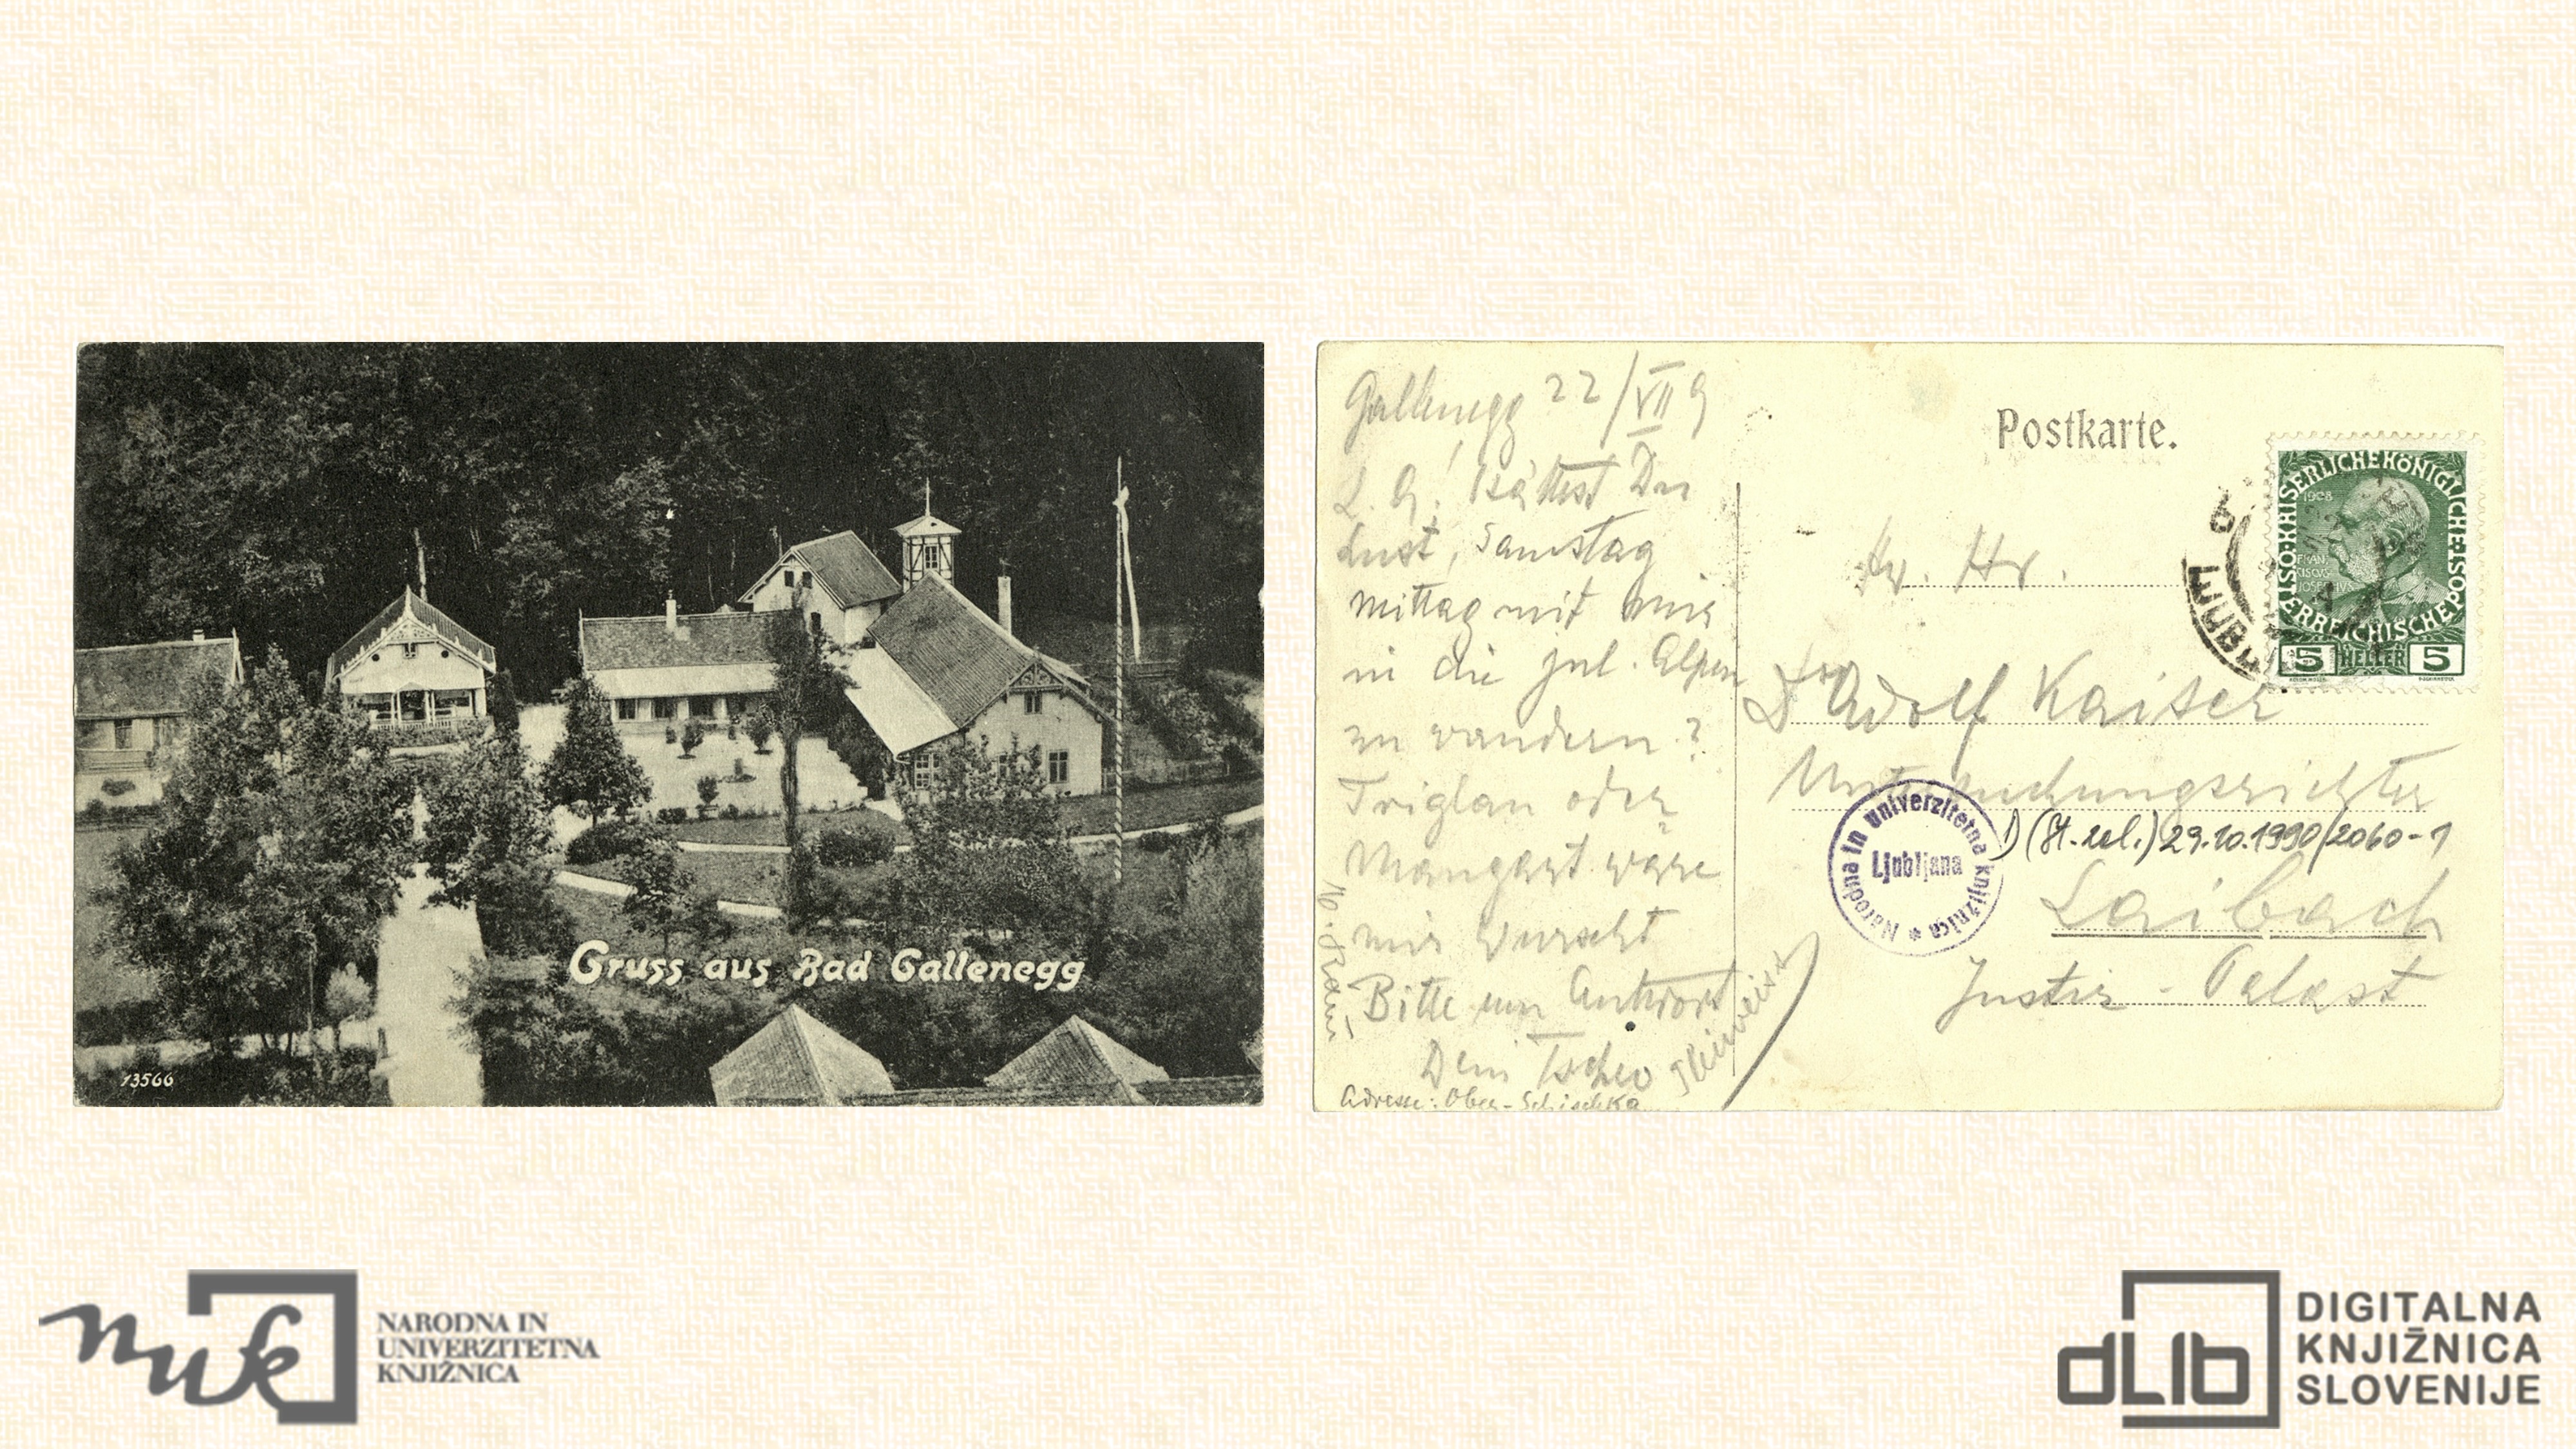 Gruss aus Bad Gallenegg
13566
Gallenegg 22/VII 9
L. A! Hättest Du
Lust, Samstag
mittag mit mir
in die jul. Alpen
zu wandern?
Triglav oder
Mangart wäre
mir Wurscht
Bitte um Antwort
Dein Tscheo
Adresse: Ober-Schischka
Postkarte.
KAISERLICHE KÖNIGLICHE
ÖSTERREICHISCHE POST
1908
5 HELLER 5
LJUB
Hr. Hr.
Dr Adolf Kaiser
Untersuchungsrichter
Narodna in univerzitetna knjižnica *
Ljubljana
D (St. zal.) 29.10.1990/2060-1
Laibach
Justiz-Palast
nuk
NARODNA IN
UNIVERZITETNA
KNJIŽNICA
dLib
DIGITALNA
KNJIŽNICA
SLOVENIJE